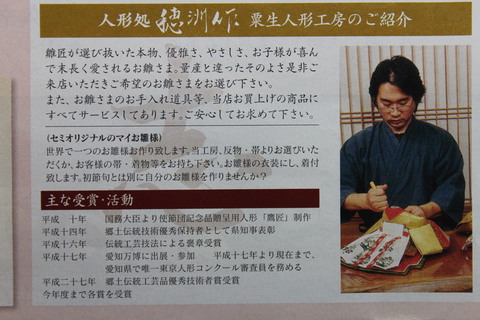 人形処 穂洲作 粟生人形工房のご紹介
雛匠が選び抜いた本物、優雅さ、やさしさ、お子様が喜ん
で末長く愛されるお雛さま。量産と違ったそのよさ是非ご
来店いただきご希望のお雛さまをお選び下さい。
また、お雛さまのお手入れ道具等、当店お買上げの商品に
すべてサービスしてあります。ご安心してお求めて下さい。
(セミオリジナルのマイお雛様)
世界で一つのお雛様お作り致します。当工房、反物・帯よりお選びいた
だくか、お客様の帯・着物等をお持ち下さい。お雛様の衣装にし、着付
致します。初節句とは別に自分のお雛様を作りませんか?
主な受賞・活動
平成 十年 国務大臣より使節団記念品贈呈用人形「鷹匠」制作
平成十四年 郷土伝統技術優秀保持者として県知事表彰
平成十六年 伝統工芸技法による褒章受賞
平成十七年 愛知万博に出展・参加 平成十七年より現在まで、
愛知県で唯一東京人形コンクール審査員を務める
平成二十七年 郷土伝統工芸品優秀技術者賞受賞
今年度まで各賞を受賞